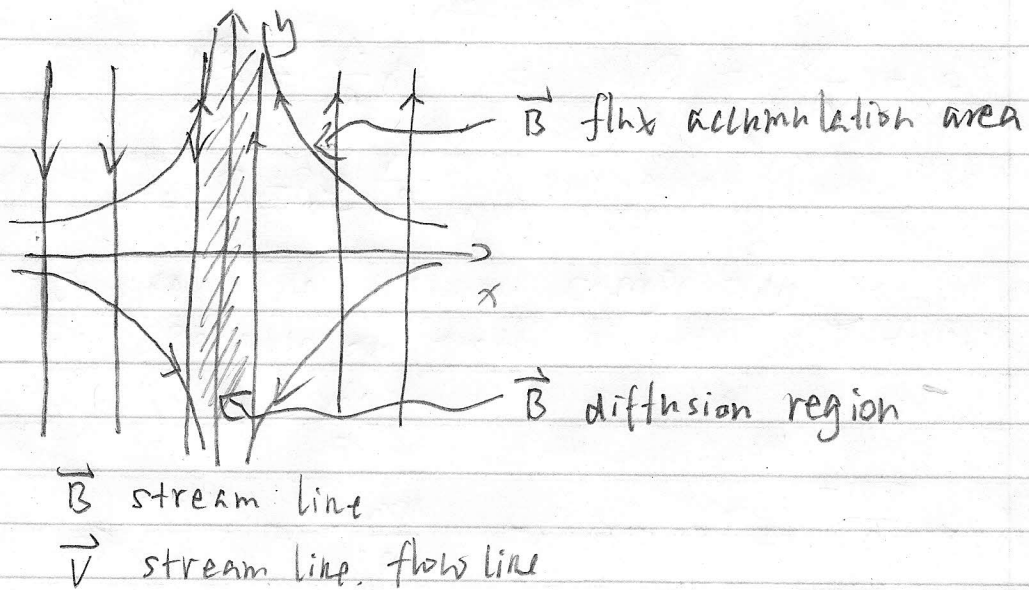 y
B⃗ flux accumulation area
x
B⃗ diffusion region
B⃗ stream line
V⃗ stream line. flow line